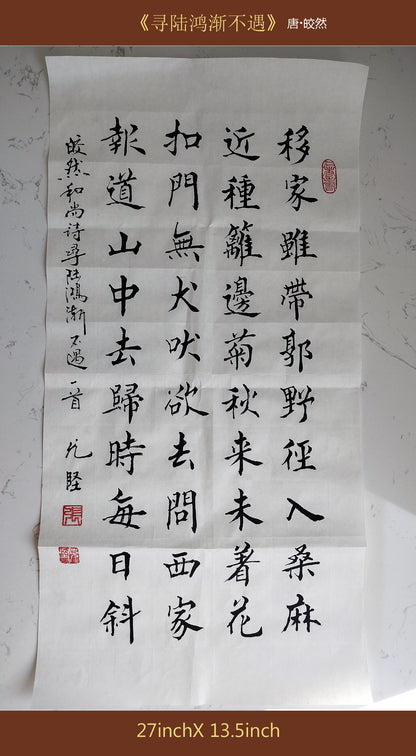 《寻陆鸿渐不遇》 唐·皎然
移家雖帶郭野径入桑麻
近種籬邊菊秋来未著花
扣門無犬吠欲去問西家
報道山中去歸時每日斜
皎然和尚诗尋陆鴻漸不遇一首 允堅
張
27inchX 13.5inch